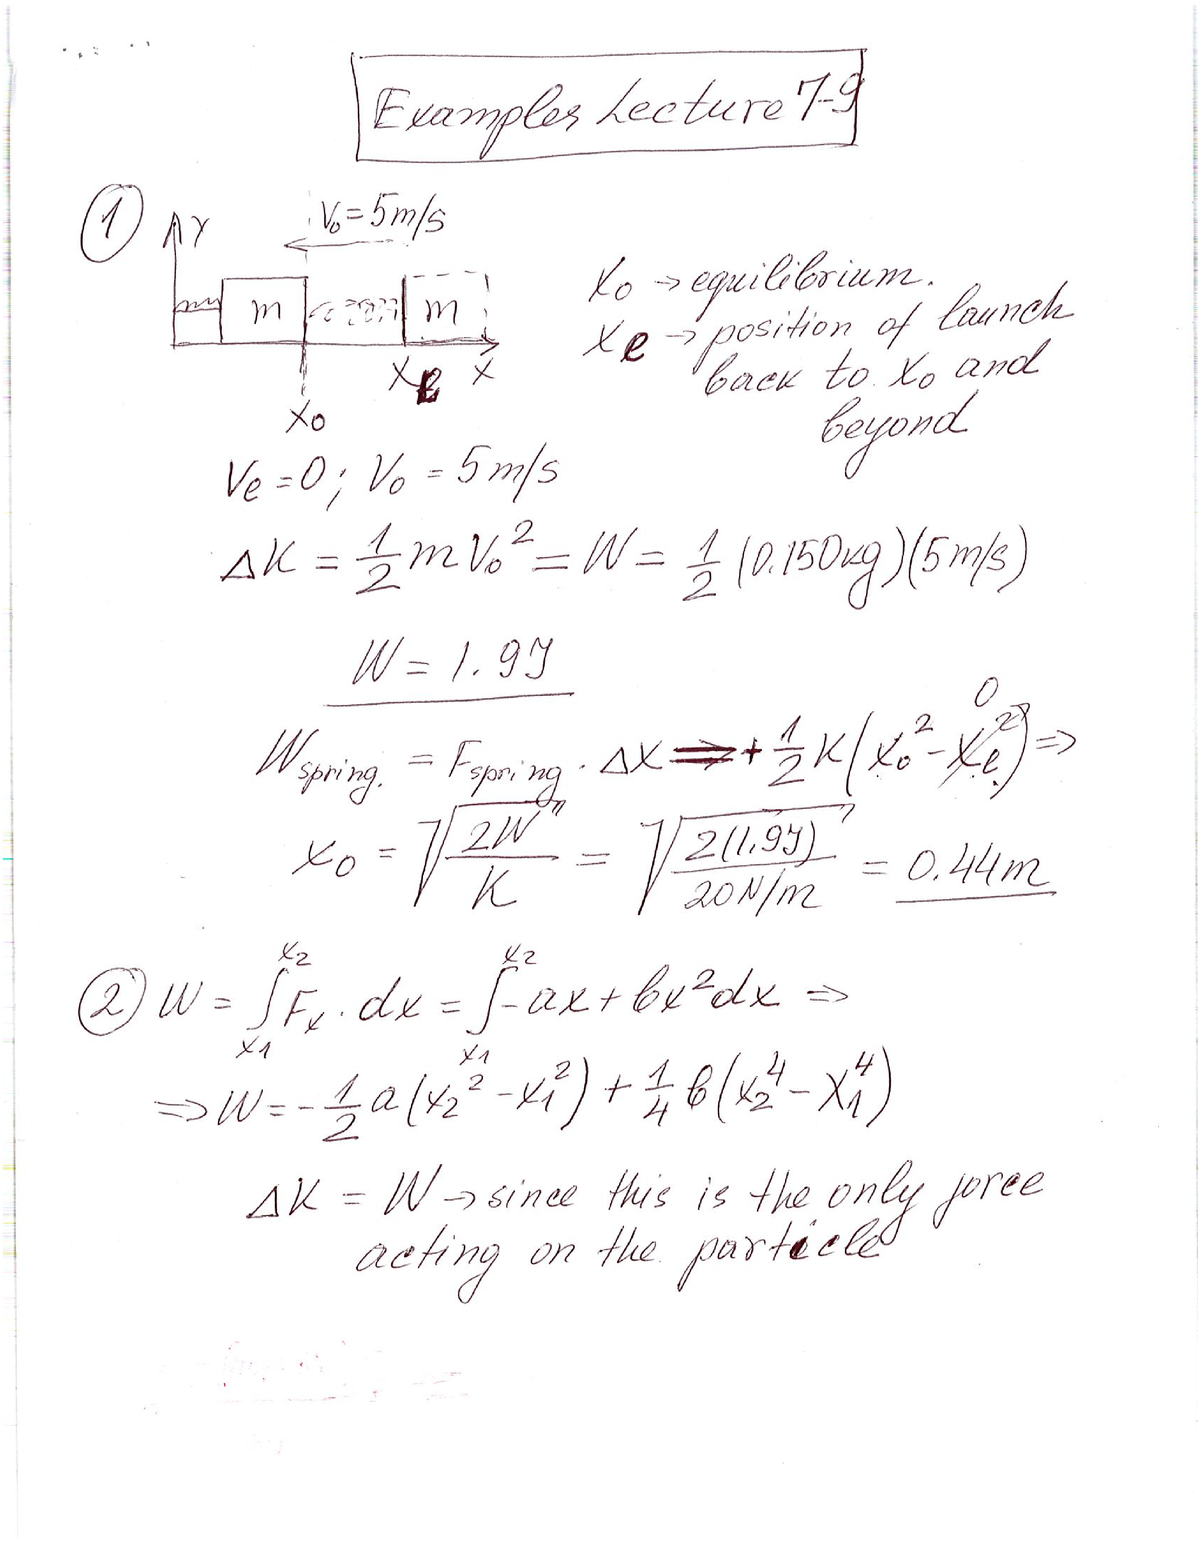 Examples Lecture 7-9
①
Y
V₀ = 5m/s
m
m
X₀
Xe
X
X₀ → equilibrium.
Xe → position of launch
back to X₀ and
beyond
Ve = 0; V₀ = 5m/s
ΔK = 1/2 m V₀² = W = 1/2 (0.150kg)(5m/s)
W = 1.9J
Wspring. = Fspring · ΔX ⇒ + 1/2 K(X₀² - Xe²) ⇒
0
X₀ = √(2W/K) = √(2(1.9J)/20N/m) = 0.44m
② W = ∫_{x1}^{x2} Fx · dx = ∫_{x1}^{x2} -ax + bx² dx ⇒
⇒ W = -1/2 a(x₂² - x₁²) + 1/4 b(x₂⁴ - x₁⁴)
ΔK = W → since this is the only force
acting on the particle